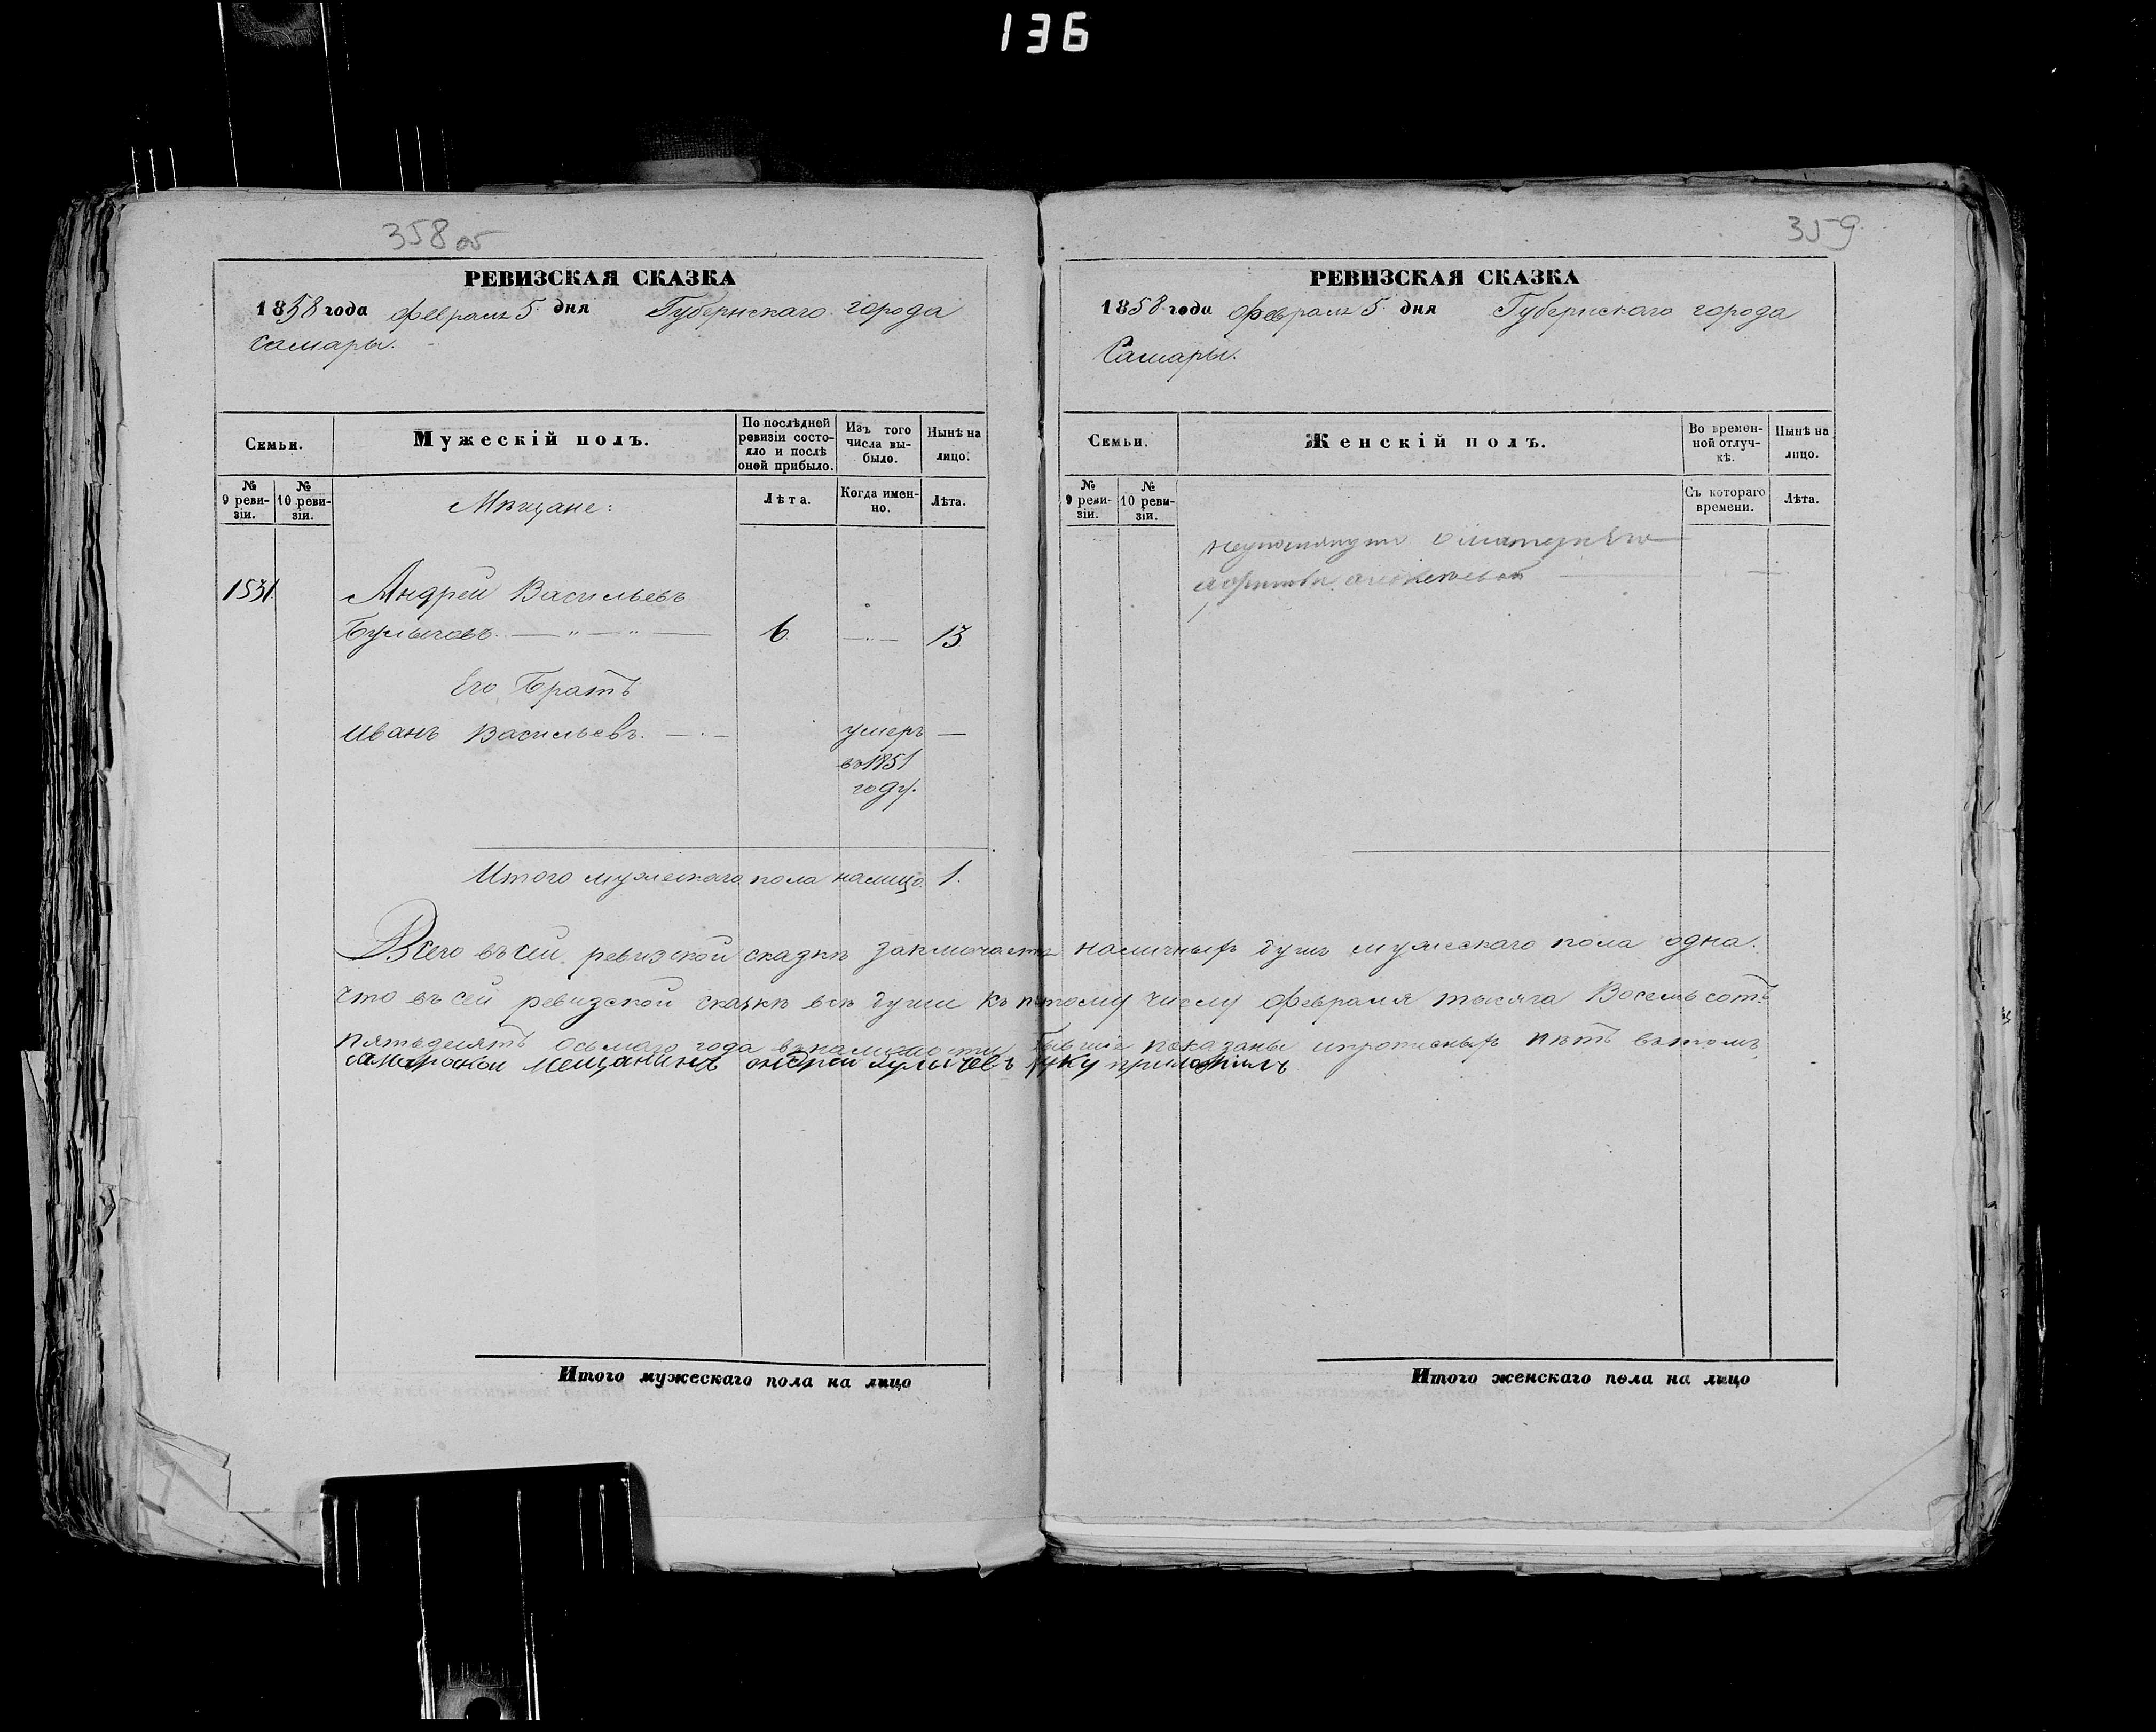 136
358 об
РЕВИЗСКАЯ СКАЗКА
1858 года февраля 5 дня Губернскаго города
Самары.
Семьи.
Мужескій полъ.
По послѣдней ревизіи состояло и послѣ оной прибыло.
Изъ того числа выбыло.
Нынѣ на лицо.
№ 9 ревизіи.
№ 10 ревизіи.
Мѣщане:
Лѣта.
Когда именно.
Лѣта.
1531.
Андрей Васильевъ
Булычовъ. — " — " — 6. — " — 13
Его Братъ
Иванъ Васильевъ. — " — умеръ —
въ 1851
году.
Итого мужескаго пола налицо. 1.
359
РЕВИЗСКАЯ СКАЗКА
1858 года февраля 5 дня Губернскаго города
Самары.
Семьи.
Женскій полъ.
Во временной отлучкѣ.
Нынѣ на лицо.
№ 9 ревизіи.
№ 10 ревизіи.
Съ котораго времени.
Лѣта.
Всего въ сей ревизской сказкѣ заключается наличныхъ душъ мужескаго пола одна.
что въ сей ревизской сказкѣ всѣ души къ пятому числу февраля тысяча Восемь сотъ
пятьдесятъ осьмаго года въ наличности бывшіе показаны и прописныхъ нѣтъ въ томъ
самарской мещанинъ андрей булычевъ руку приложилъ
Итого мужескаго пола на лицо
Итого женскаго пола на лицо